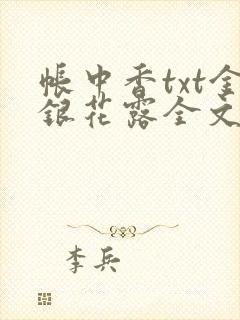 帐中香txt金
银花露全文
李兵